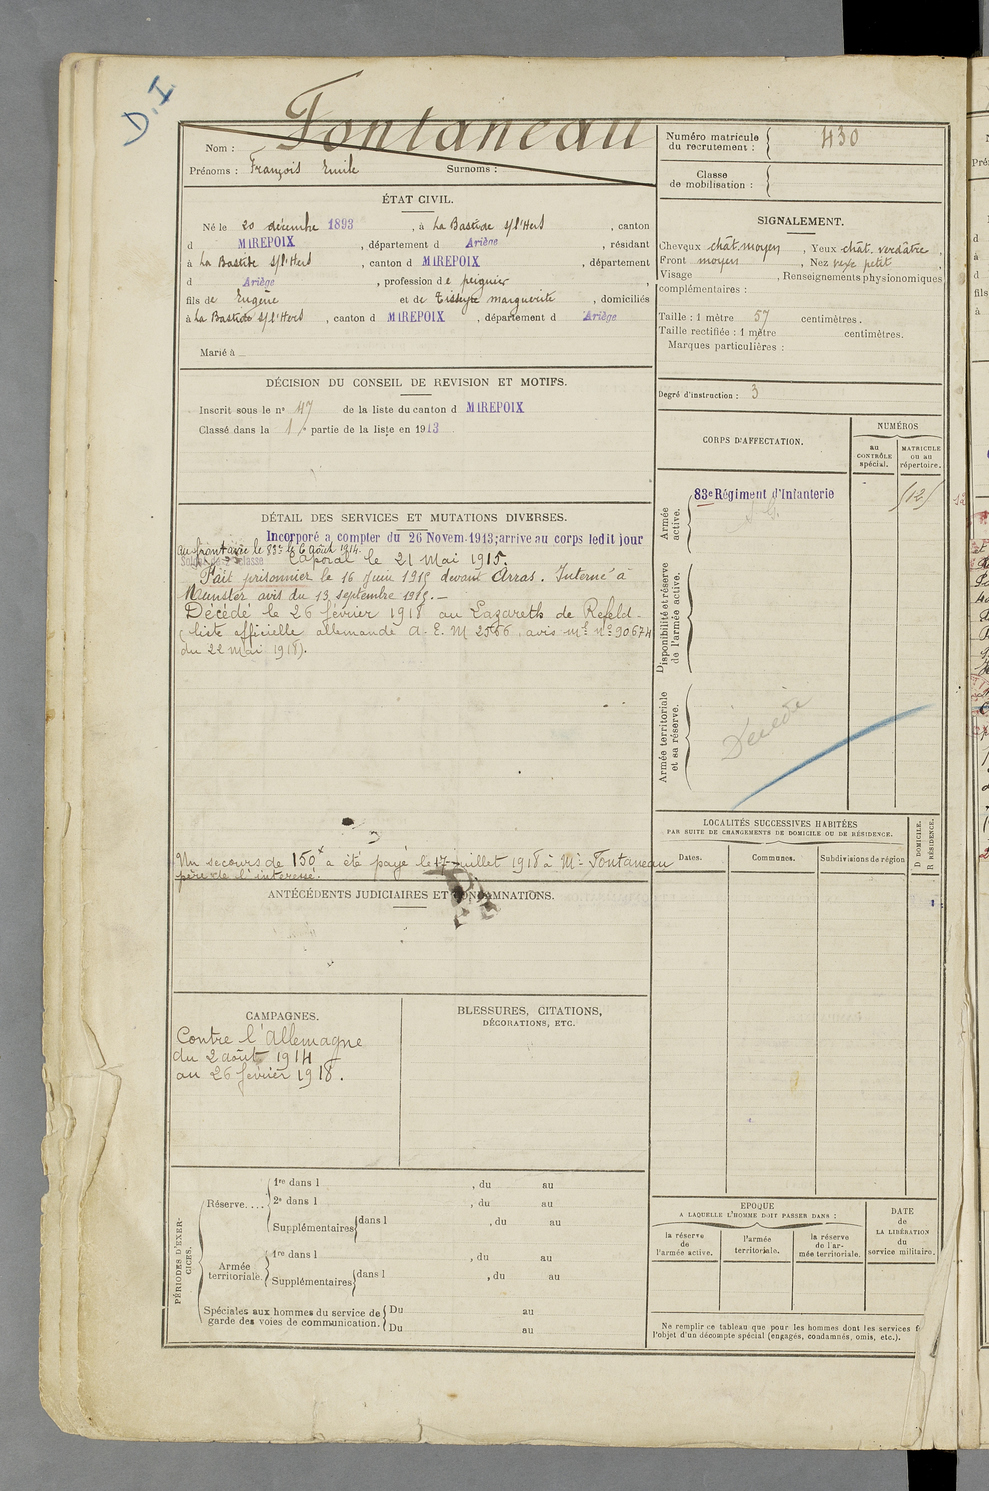 D.I
Nom : Fontaneau
Prénoms : François Emile Surnoms :
Numéro matricule du recrutement : 430
Classe de mobilisation :
ÉTAT CIVIL.
Né le 20 décembre 1893, à La Bastide s/l'Hers, canton
d MIREPOIX, département d Ariège, résidant
à La Bastide s/l'Hers, canton d MIREPOIX, département
d Ariège, profession de peignier,
fils de Eugène et de Tisseyre marguerite, domiciliés
à La Bastide s/l'Hers, canton d MIREPOIX, département d Ariège
Marié à
SIGNALEMENT.
Cheveux chât. moyen, Yeux chât. verdâtre,
Front moyen, Nez vexe petit,
Visage , Renseignements physionomiques
complémentaires :
Taille : 1 mètre 57 centimètres.
Taille rectifiée : 1 mètre centimètres.
Marques particulières :
DÉCISION DU CONSEIL DE REVISION ET MOTIFS.
Inscrit sous le nº 47 de la liste du canton d MIREPOIX
Classé dans la 1 partie de la liste en 1913
Degré d'instruction : 3
CORPS D'AFFECTATION.
NUMÉROS
au CONTRÔLE spécial.
MATRICULE ou au répertoire.
Armée active.
83e Régiment d'Infanterie
(12)
Disponibilité et réserve de l'armée active.
Armée territoriale et sa réserve.
Décédé
DÉTAIL DES SERVICES ET MUTATIONS DIVERSES.
Incorporé a compter du 26 Novem. 1913; arrive au corps ledit jour
au front avec le 83e le 6 août 1914.
Soldat de 2e classe Caporal le 21 Mai 1915.
Fait prisonnier le 16 Juin 1915 devant Arras. Interné à
Munster avis du 13 septembre 1915.—
Décédé le 26 février 1918 au Lazareth de Refeld-
(liste officielle allemande A. E. M 2566, avis ml nº 90674
du 22 mai 1918).
Un secours de 150 a été payé le 17 Juillet 1918 à Mr Fontaneau
père de l'interessé.
LOCALITÉS SUCCESSIVES HABITÉES
PAR SUITE DE CHANGEMENTS DE DOMICILE OU DE RÉSIDENCE.
Dates.
Communes.
Subdivisions de région
D DOMICILE.
R RÉSIDENCE.
ANTÉCÉDENTS JUDICIAIRES ET CONDAMNATIONS.
CAMPAGNES.
Contre l'Allemagne
du 2 août 1914
au 26 février 1918.
BLESSURES, CITATIONS,
DÉCORATIONS, ETC.
PÉRIODES D'EXERCICES.
Réserve....
1re dans l , du au
2e dans l , du au
Supplémentaires dans l , du au
Armée territoriale.
1re dans l , du au
Supplémentaires dans l , du au
Spéciales aux hommes du service de garde des voies de communication.
Du au
Du au
EPOQUE
A LAQUELLE L'HOMME DOIT PASSER DANS :
la réserve de l'armée active.
l'armée territoriale.
la réserve de l'armée territoriale.
DATE de LA LIBÉRATION du service militaire.
Ne remplir ce tableau que pour les hommes dont les services f
l'objet d'un décompte spécial (engagés, condamnés, omis, etc.).